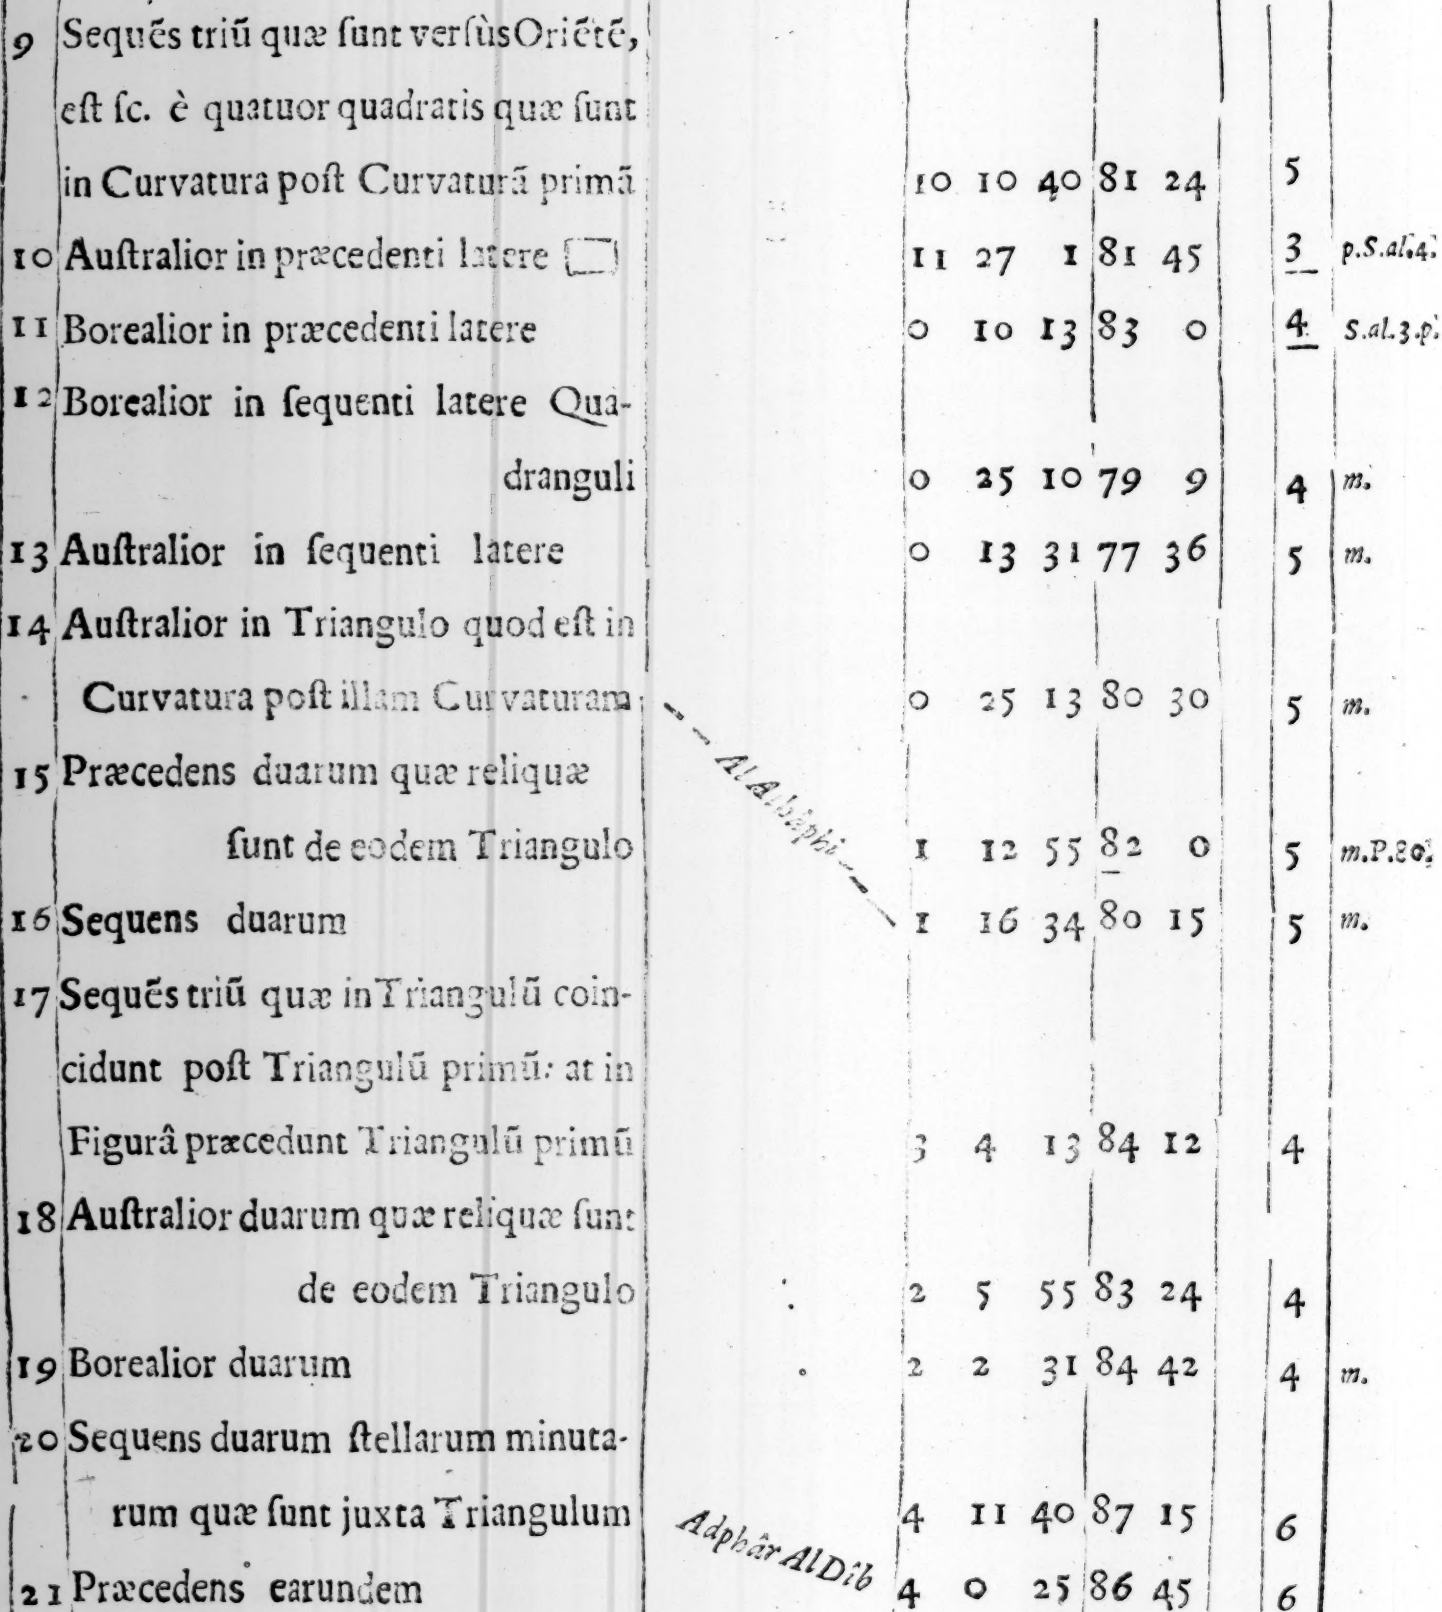 9 Sequẽs triũ quæ ſunt verſùs Oriẽtẽ,
eſt ſc. è quatuor quadratis quæ ſunt
in Curvatura poſt Curvaturã primã 10 10 40 81 24 5
10 Auſtralior in præcedenti latere 11 27 1 81 45 3 p.S.al.4.
11 Borealior in præcedenti latere 0 10 13 83 0 4 S.al.3.p.
12 Borealior in ſequenti latere Qua-
dranguli 0 25 10 79 9 4 m.
13 Auſtralior in ſequenti latere 0 13 31 77 36 5 m.
14 Auſtralior in Triangulo quod eſt in
Curvatura poſt illam Curvaturam 0 25 13 80 30 5 m.
15 Præcedens duarum quæ reliquæ
Al Aibâphi
ſunt de eodem Triangulo 1 12 55 82 0 5 m.P.80.
16 Sequens duarum 1 16 34 80 15 5 m.
17 Sequẽs triũ quæ in Triangulũ coin-
cidunt poſt Triangulũ primũ: at in
Figurâ præcedunt Triangulũ primũ 3 4 13 84 12 4
18 Auſtralior duarum quæ reliquæ ſunt
de eodem Triangulo 2 5 55 83 24 4
19 Borealior duarum 2 2 31 84 42 4 m.
20 Sequens duarum ſtellarum minuta-
rum quæ ſunt juxta Triangulum 4 11 40 87 15 6
Adphâr AlDîb
21 Præcedens earundem 4 0 25 86 45 6